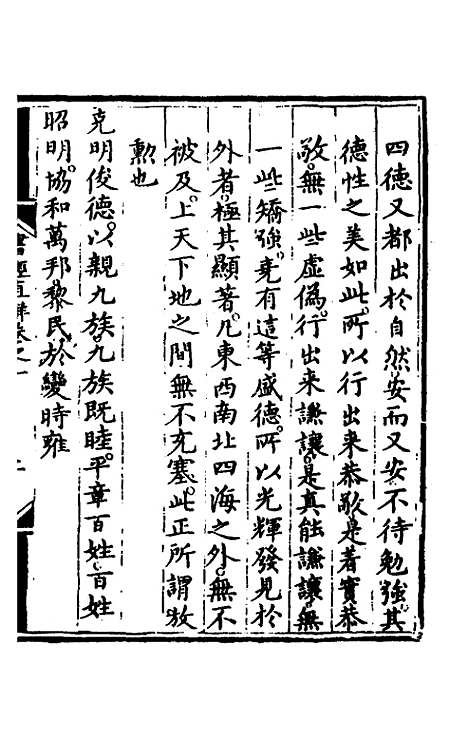 四德又都出於自然安而又安不待勉強其
德性之美如此所以行出來恭敬是著實恭
敬無一些虛僞行出來謙讓是真能謙讓無
一些矯強堯有這等盛德所以光輝發見於
外者極其顯著凡東西南北四海之外無不
被及上天下地之間無不充塞此正所謂放
勳也
克明俊德以親九族九族既睦平章百姓百姓
昭明協和萬邦黎民於變時雍
書經直解卷之一